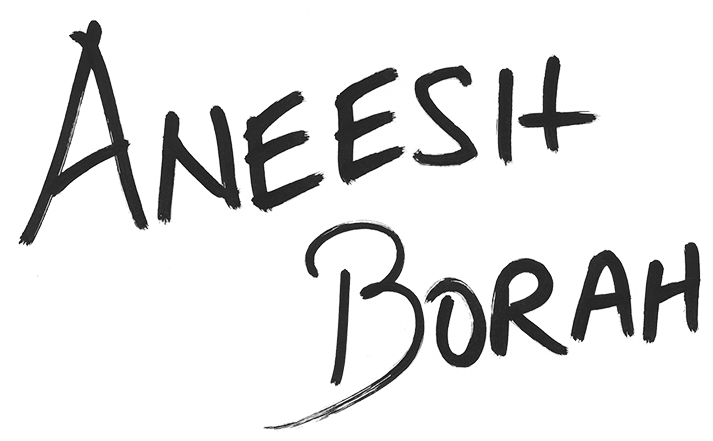 ANEESH
BORAH